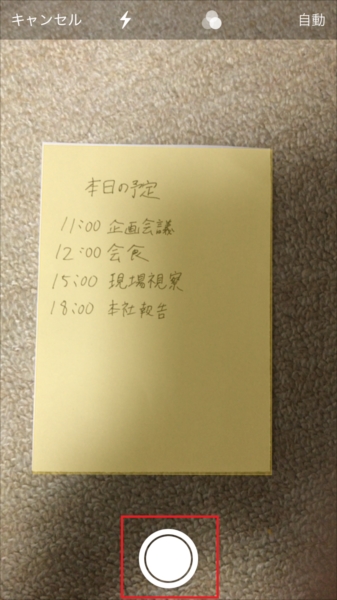 キャンセル 自動
本日の予定
11:00 企画会議
12:00 会食
15:00 現場視察
18:00 本社報告